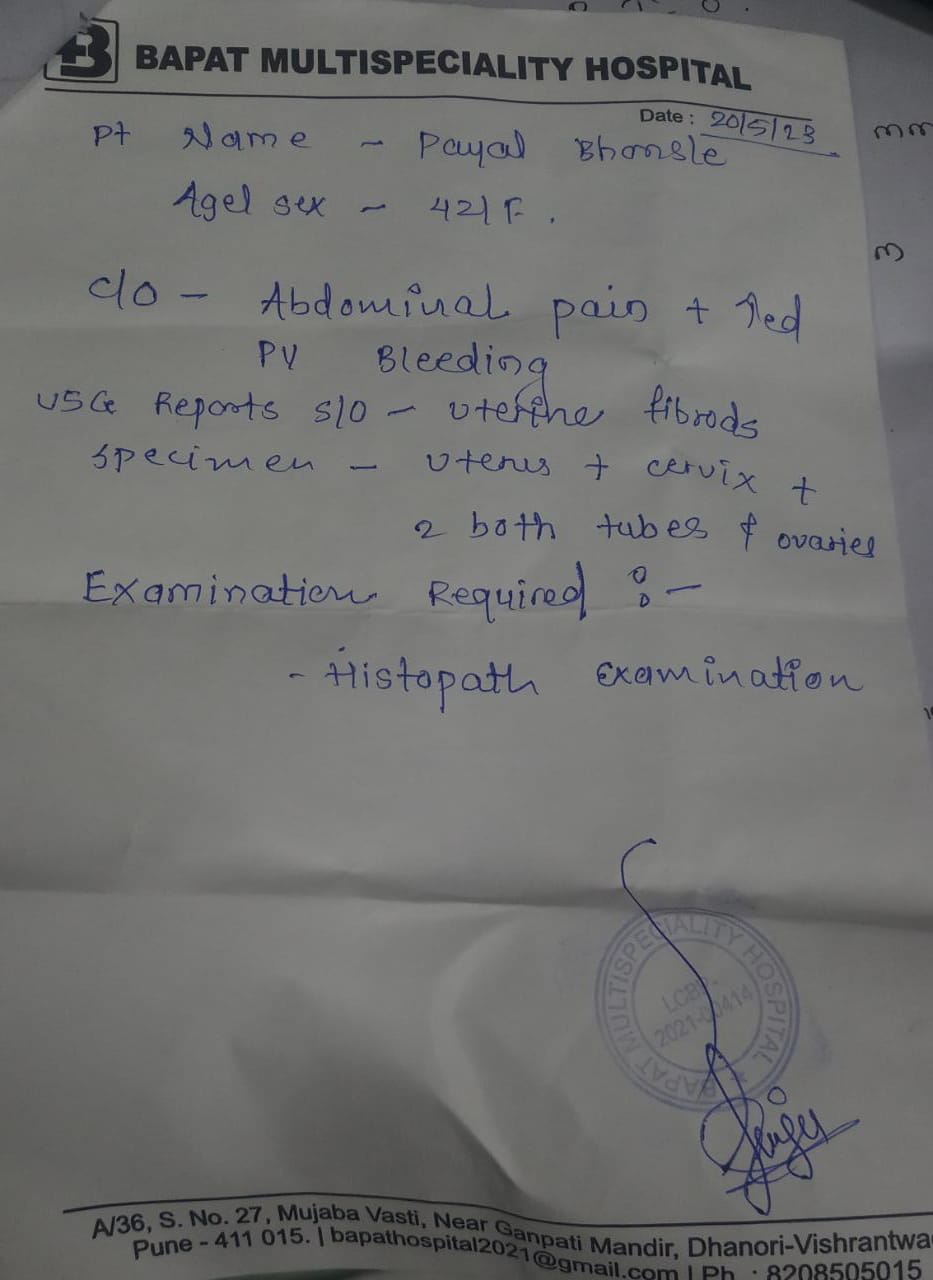 BAPAT MULTISPECIALITY HOSPITAL
Date : 20/5/23
Pt Name - Payal Bhonsle
Age/ sex - 42/F.
c/o - Abdominal pain + ↑ed
PV Bleeding
USG Reports s/o - uterine fibrods
specimen - uterus + cervix +
2 both tubes & ovaries
Examination Required :-
- Histopath Examination
BAPAT MULTISPECIALITY HOSPITAL
2021-00414
A/36, S. No. 27, Mujaba Vasti, Near Ganpati Mandir, Dhanori-Vishrantwa
Pune - 411 015. | bapathospital2021@gmail.com | Ph. : 8208505015